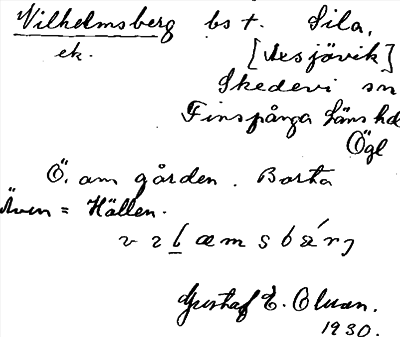 Vilhelmsberg bs t. Sila,
ek. [Axsjövik]
Skedevi sn
Finspånga läns hd
Ögl
Ö. om gården. Borta
Även = Hällen.
Gustaf E. Olsson.
1930.